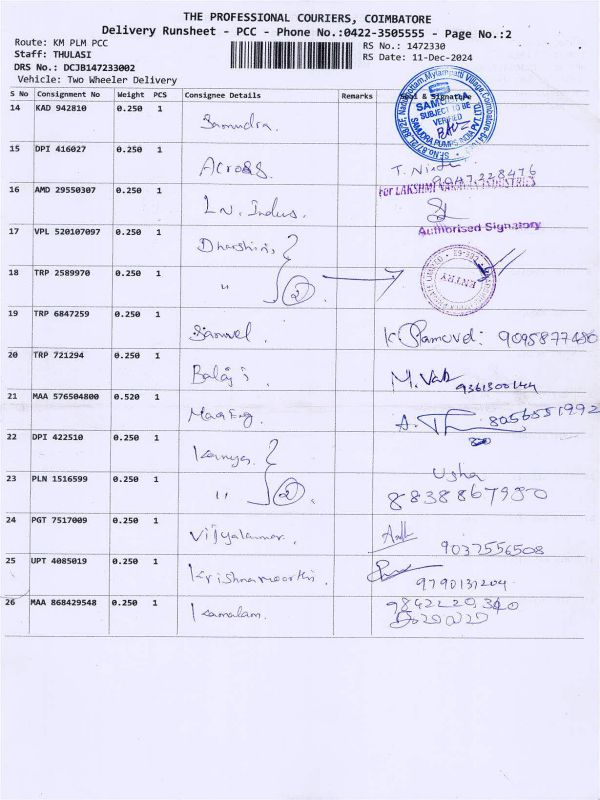 THE PROFESSIONAL COURIERS, COIMBATORE
Delivery Runsheet - PCC - Phone No.:0422-3505555 - Page No.:2
Route: KM PLM PCC
Staff: THULASI
DRS No.: DCJB147233002
Vehicle: Two Wheeler Delivery
RS No.: 1472330
RS Date: 11-Dec-2024
S No Consignment No Weight PCS Consignee Details Remarks Seal & Signature
14 KAD 942810 0.250 1 Samudra.
SUBJECT TO BE
VERIFIED
SAMUDRA PUMPS INDIA PVT LTD
15 DPI 416027 0.250 1 Across.
16 AMD 29550307 0.250 1 L.N. Indus.
For LAKSHMI
Authorised Signatory
17 VPL 520107097 0.250 1 Dharshini,
18 TRP 2589970 0.250 1 " 2
ENTRY
19 TRP 6847259 0.250 1 Samuel 9095877480
20 TRP 721294 0.250 1 Balaji
21 MAA 576504800 0.520 1 8056551992
22 DPI 422510 0.250 1 Kaniya
23 PLN 1516599 0.250 1 " 2 Usha
8838867980
24 PGT 7517009 0.250 1 Vijyalaumar. 9037556508
25 UPT 4085019 0.250 1 Krishnamoorthi. 9790137204
26 MAA 868429548 0.250 1 Kamalam.